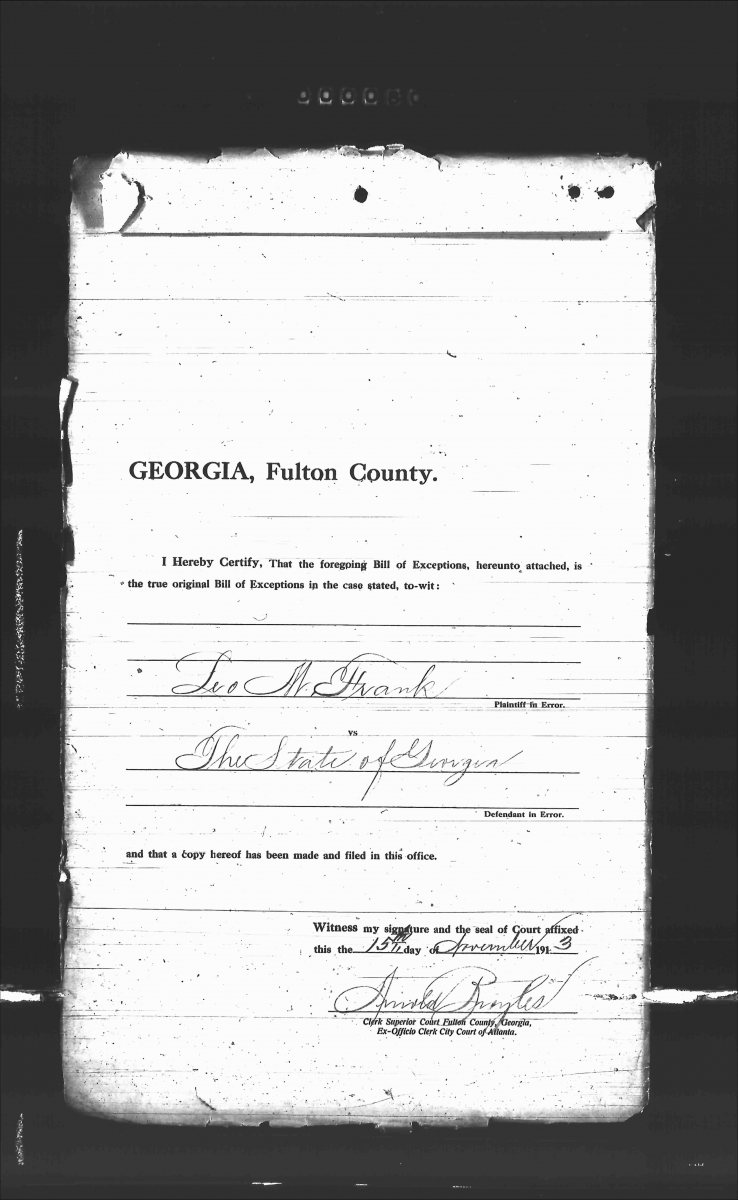 GEORGIA, Fulton County.
I Hereby Certify, That the foregoing Bill of Exceptions, hereunto attached, is
the true original Bill of Exceptions in the case stated, to-wit:
Leo M. Frank
Plaintiff in Error.
vs
The State of Georgia
Defendant in Error.
and that a copy hereof has been made and filed in this office.
Witness my signature and the seal of Court affixed
this the 15th day of November 1913
Arnold Broyles
Clerk Superior Court Fulton County, Georgia,
Ex-Officio Clerk City Court of Atlanta.